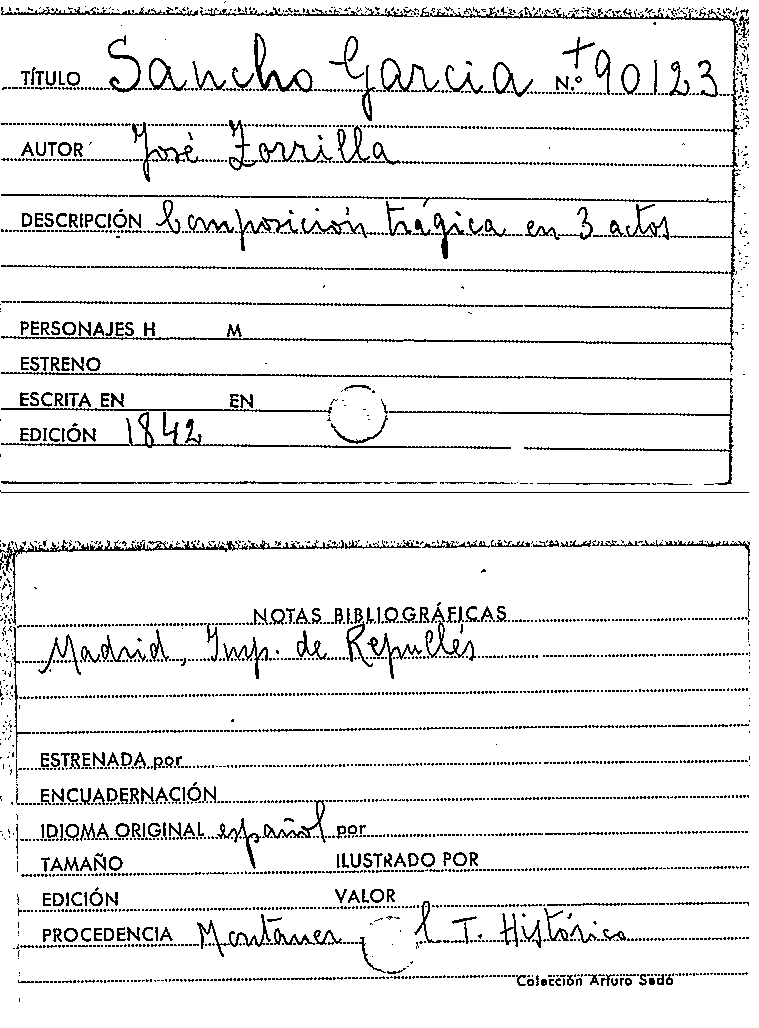 TÍTULO Sancho Garcia N.º 90123
AUTOR José Zorrilla
DESCRIPCIÓN Composición trágica en 3 actos
PERSONAJES H M
ESTRENO
ESCRITA EN EN
EDICIÓN 1842
NOTAS BIBLIOGRÁFICAS
Madrid, Imp. de Repullés
ESTRENADA por
ENCUADERNACIÓN
IDIOMA ORIGINAL español por
TAMAÑO ILUSTRADO POR
EDICIÓN VALOR
PROCEDENCIA Montaner T. Histórico
Colección Arturo Sedó